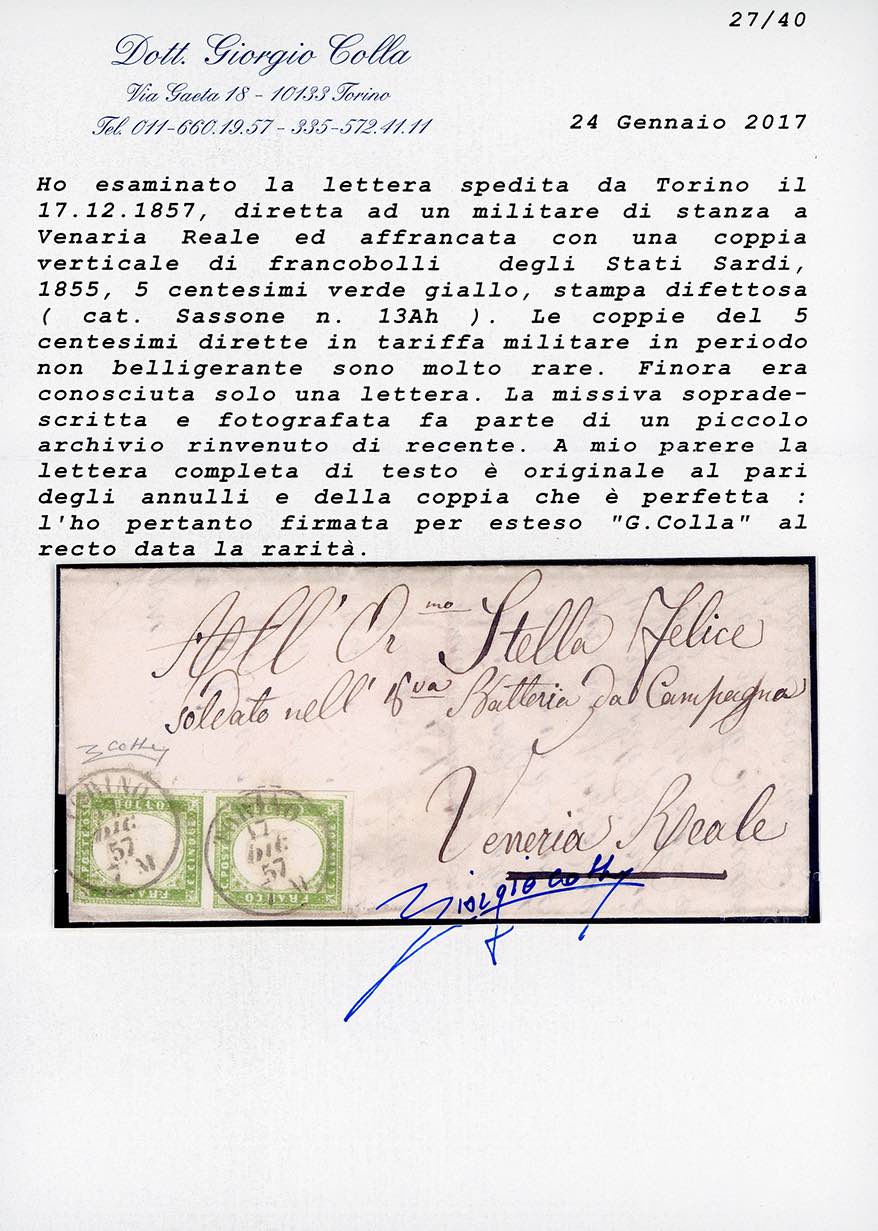 27/40
Dott. Giorgio Colla
Via Gaeta 18 - 10133 Torino
Tel. 011-660.19.57 - 335-572.41.11
24 Gennaio 2017
Ho esaminato la lettera spedita da Torino il
17.12.1857, diretta ad un militare di stanza a
Venaria Reale ed affrancata con una coppia
verticale di francobolli degli Stati Sardi,
1855, 5 centesimi verde giallo, stampa difettosa
( cat. Sassone n. 13Ah ). Le coppie del 5
centesimi dirette in tariffa militare in periodo
non belligerante sono molto rare. Finora era
conosciuta solo una lettera. La missiva soprade-
scritta e fotografata fa parte di un piccolo
archivio rinvenuto di recente. A mio parere la
lettera completa di testo è originale al pari
degli annulli e della coppia che è perfetta :
l'ho pertanto firmata per esteso "G.Colla" al
recto data la rarità.
All' Or mo Stella Felice
soldato nell' 8va Batteria da Campagna
Veneria Reale
TORINO
17
DIC
57
7 M
TORINO
17
DIC
57
M
FRANCO
C.CINQUE
POSTE
FRANCO
POSTE
Giorgio Colla